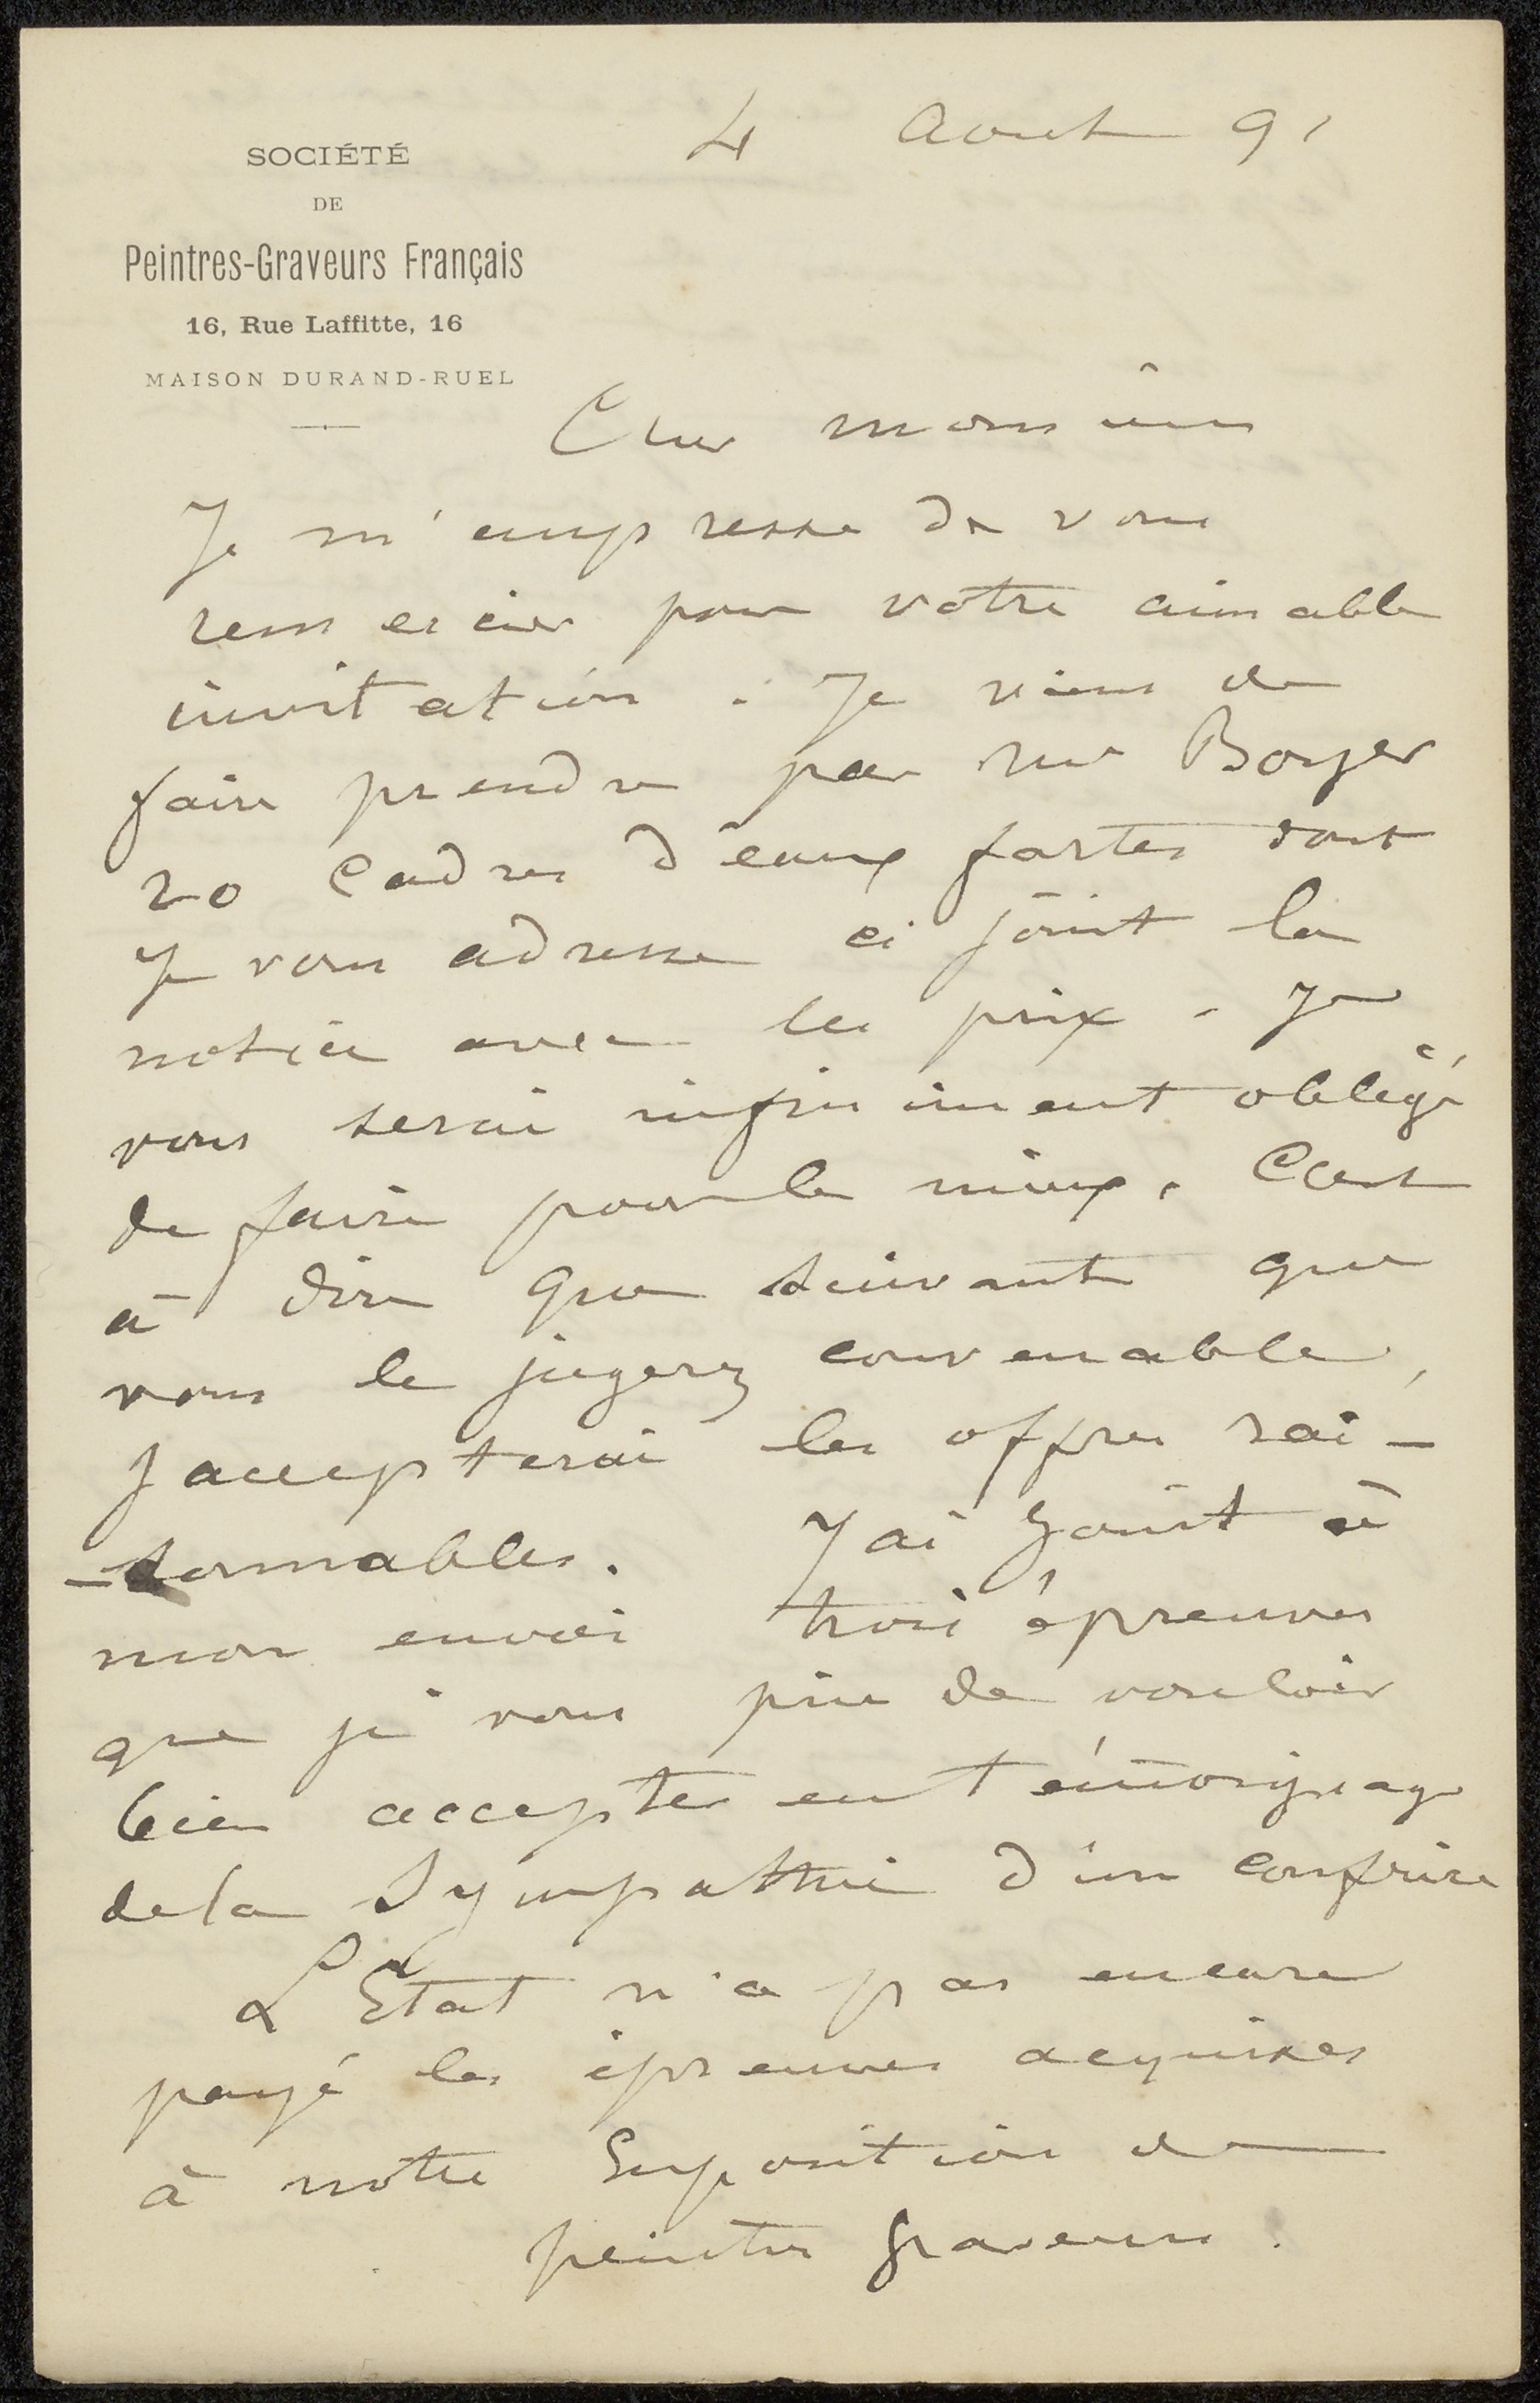 4 Aout 91
SOCIÉTÉ
DE
Peintres-Graveurs Français
16, Rue Laffitte, 16
MAISON DURAND-RUEL
Cher monsieur
Je m'empresse de vous
remercier pour votre aimable
invitation. Je viens de
faire prendre par Mr Boyer
20 Cadres d'eaux fortes dont
je vous adresse ci joint la
notice avec les prix. Je
vous serai infiniment obligé
de faire pour le mieux. C'est
à dire que suivant que
vous le jugerez convenable,
J'accepterai les offres rai-
-sonnables. J'ai joint à
mon envoi trois épreuves
que je vous prie de vouloir
bien accepter en témoignage
de la Sympathie d'un confrère
L'Etat n'a pas encore
payé les épreuves acquises
à notre Exposition de
peintres graveurs.